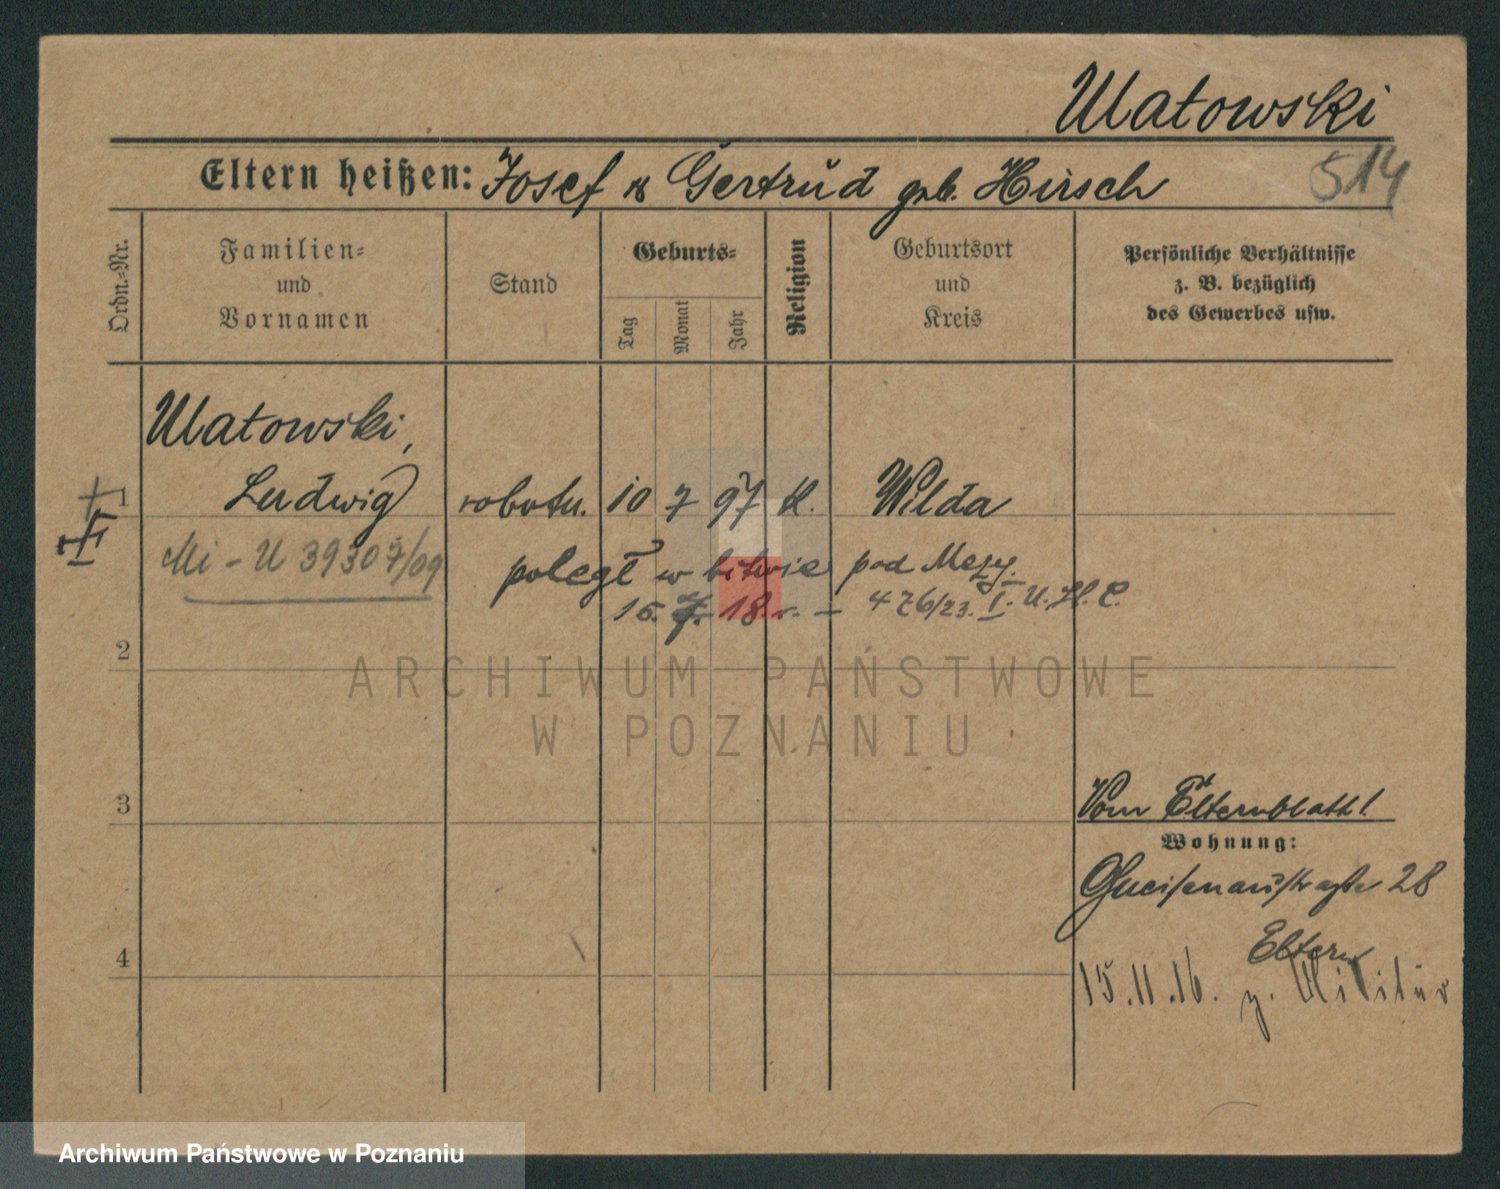 Matowski
Eltern heißen: Josef u Gertrud geb. Hirsch
514
Ordn.-Nr.
Familien-
und
Vornamen
Stand
Geburts-
Tag
Monat
Jahr
Religion
Geburtsort
und
Kreis
Persönliche Verhältnisse
z. B. bezüglich
des Gewerbes usw.
Matowski,
1 Ludwig robotn. 10 7 97 k. Wilda
Mi - U 39307/09
poległ w bitwie pod Mezy.
15. 7. 18. r. - 476/23. I. U.
2
ARCHIWUM PAŃSTWOWE
W POZNANIU
3
Vom Elternblatt!
Wohnung:
Gneisenaustraße 28
Eltern
4
15.11.16. z. Militär
Archiwum Państwowe w Poznaniu